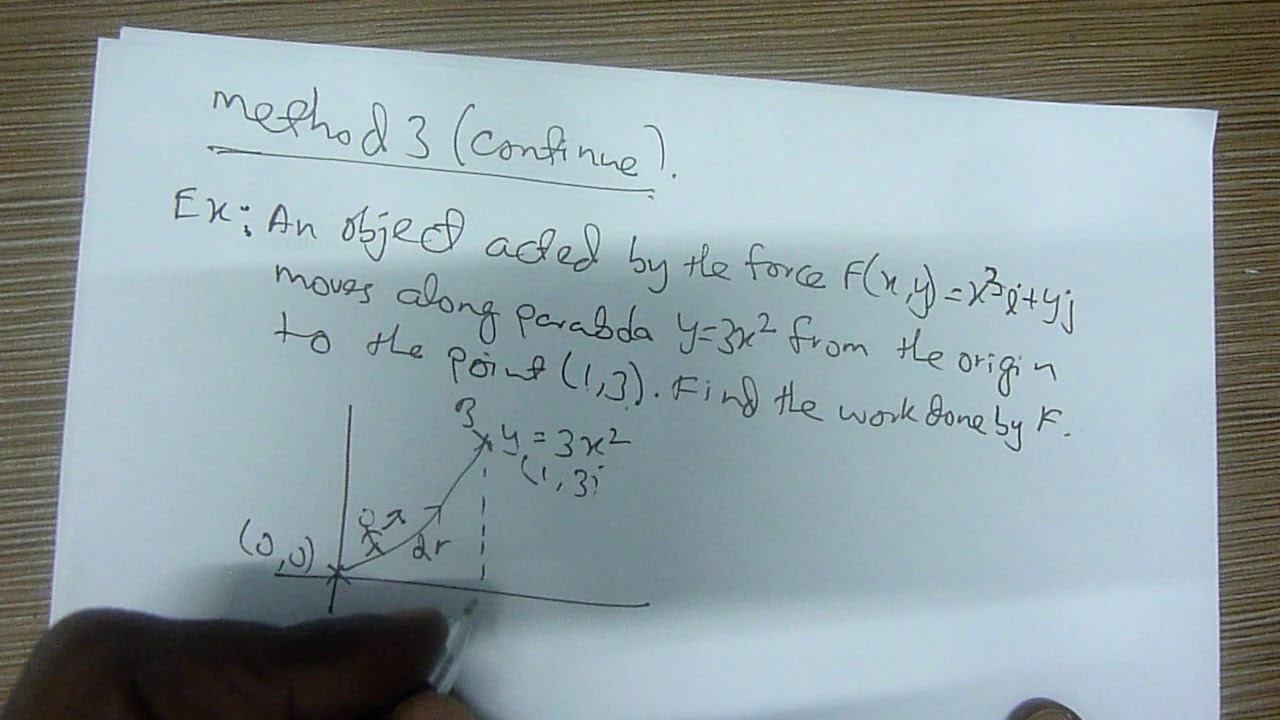 method 3 (continue).
Ex: An object acted by the force F(x,y)=x³i+yj
moves along parabola y=3x² from the origin
to the point (1,3). Find the work done by F.
3
y = 3x²
(1,3)
(0,0)
dr